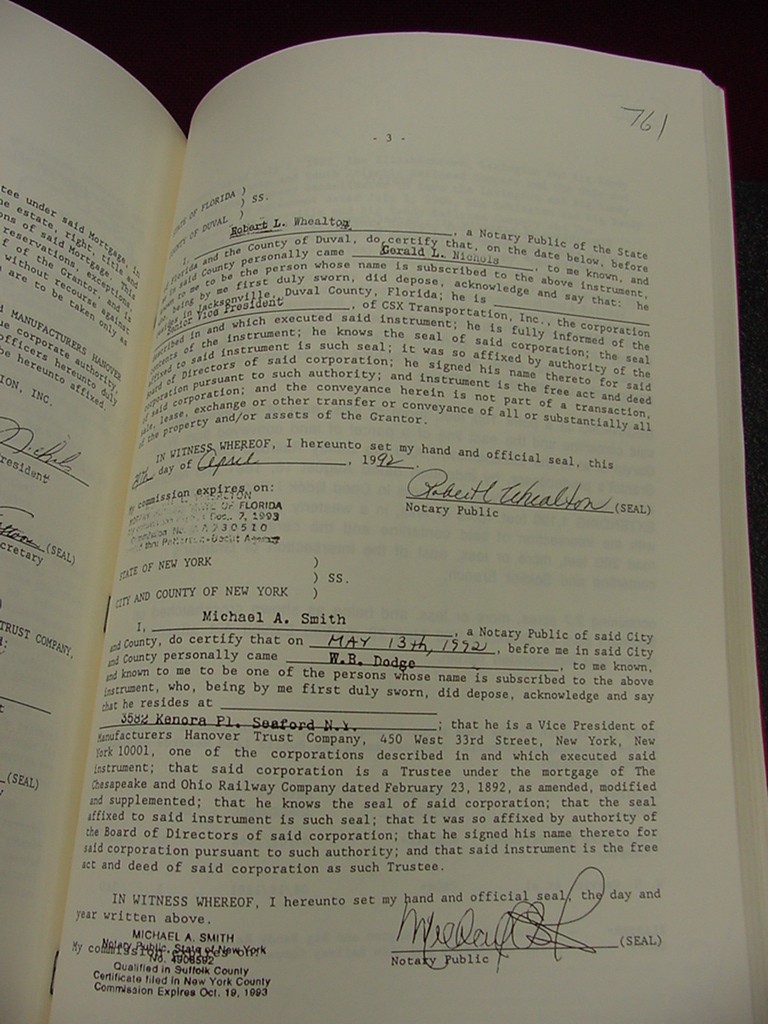 tee under said Mortgage, in
estate, right, title and
ons of said Mortgage. This
reservations, exceptions
of the Grantor, and is
without recourse against
are to be taken only as
MANUFACTURERS HANOVER
corporate authority,
officers hereunto duly
be hereunto affixed
ION, INC.
resident
(SEAL)
cretary
TRUST COMPANY,
(SEAL)
761
- 3 -
OF FLORIDA )
) SS.
OF DUVAL )
Robert L. Whealton, a Notary Public of the State
Florida and the County of Duval, do certify that, on the date below, before
said County personally came Gerald L. Nichols, to me known, and
to me to be the person whose name is subscribed to the above instrument,
being by me first duly sworn, did depose, acknowledge and say that: he
in Jacksonville, Duval County, Florida; he is
Senior Vice President, of CSX Transportation, Inc., the corporation
described in and which executed said instrument; he is fully informed of the
contents of the instrument; he knows the seal of said corporation; the seal
affixed to said instrument is such seal; it was so affixed by authority of the
Board of Directors of said corporation; he signed his name thereto for said
corporation pursuant to such authority; and instrument is the free act and deed
said corporation; and the conveyance herein is not part of a transaction,
sale, lease, exchange or other transfer or conveyance of all or substantially all
of the property and/or assets of the Grantor.
IN WITNESS WHEREOF, I hereunto set my hand and official seal, this
day of April, 1992.
Robert L Whealton (SEAL)
Notary Public
My commission expires on:
OF FLORIDA
Dec. 7, 1993
STATE OF NEW YORK )
) SS.
CITY AND COUNTY OF NEW YORK )
I, Michael A. Smith, a Notary Public of said City
and County, do certify that on MAY 13th, 1992, before me in said City
and County personally came W.B. Dodge, to me known,
and known to me to be one of the persons whose name is subscribed to the above
instrument, who, being by me first duly sworn, did depose, acknowledge and say
that he resides at
3582 Kenora Pl. Seaford N.Y.; that he is a Vice President of
Manufacturers Hanover Trust Company, 450 West 33rd Street, New York, New
York 10001, one of the corporations described in and which executed said
instrument; that said corporation is a Trustee under the mortgage of The
Chesapeake and Ohio Railway Company dated February 23, 1892, as amended, modified
and supplemented; that he knows the seal of said corporation; that the seal
affixed to said instrument is such seal; that it was so affixed by authority of
the Board of Directors of said corporation; that he signed his name thereto for
said corporation pursuant to such authority; and that said instrument is the free
act and deed of said corporation as such Trustee.
IN WITNESS WHEREOF, I hereunto set my hand and official seal, the day and
year written above.
(SEAL)
Notary Public
My commission
MICHAEL A. SMITH
Notary Public, State of New York
No. 4906592
Qualified in Suffolk County
Certificate filed in New York County
Commission Expires Oct. 19, 1993